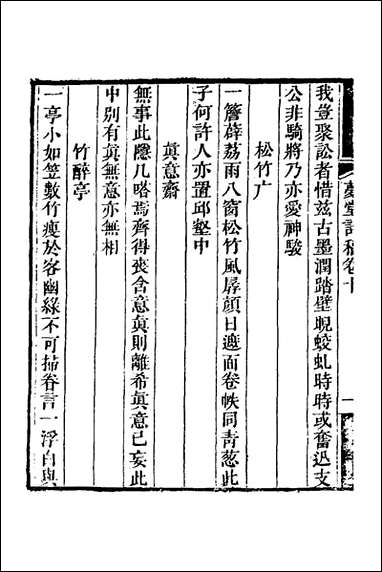 夢堂詩稿卷十
一
我豈聚訟者惜茲古墨潤踏壁蜺蛟虬時時或奮迅支
公非騎將乃亦愛神駿
松竹广
一簷薜荔雨八窗松竹風孱顔日遶面卷帙同青葱此
子何許人亦置邱壑中
眞意齋
無事此隱几略焉齊得喪含意眞則離希眞意已妄此
中别有眞無意亦無相
竹醉亭
一亭小如笠數竹瘦於客幽綠不可掃眷言一浮白與